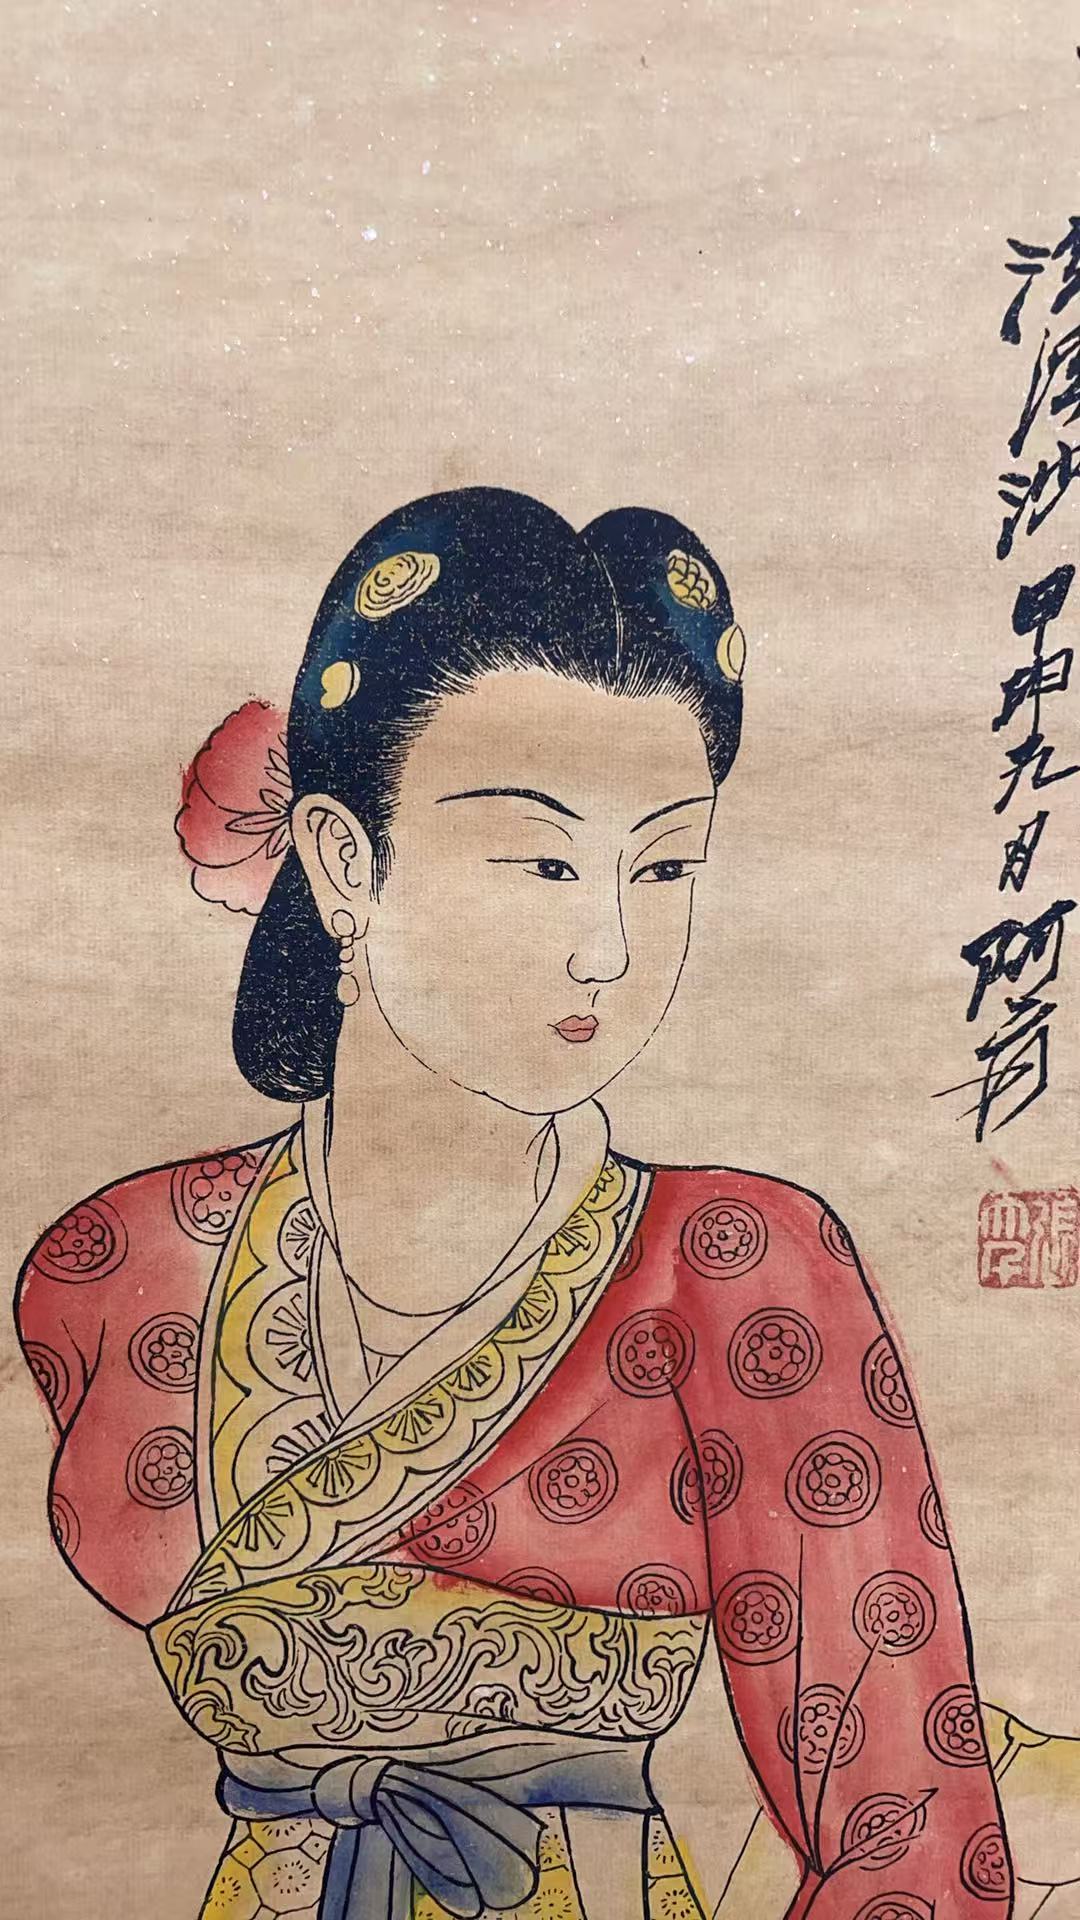 浣溪沙甲申九月阿爰